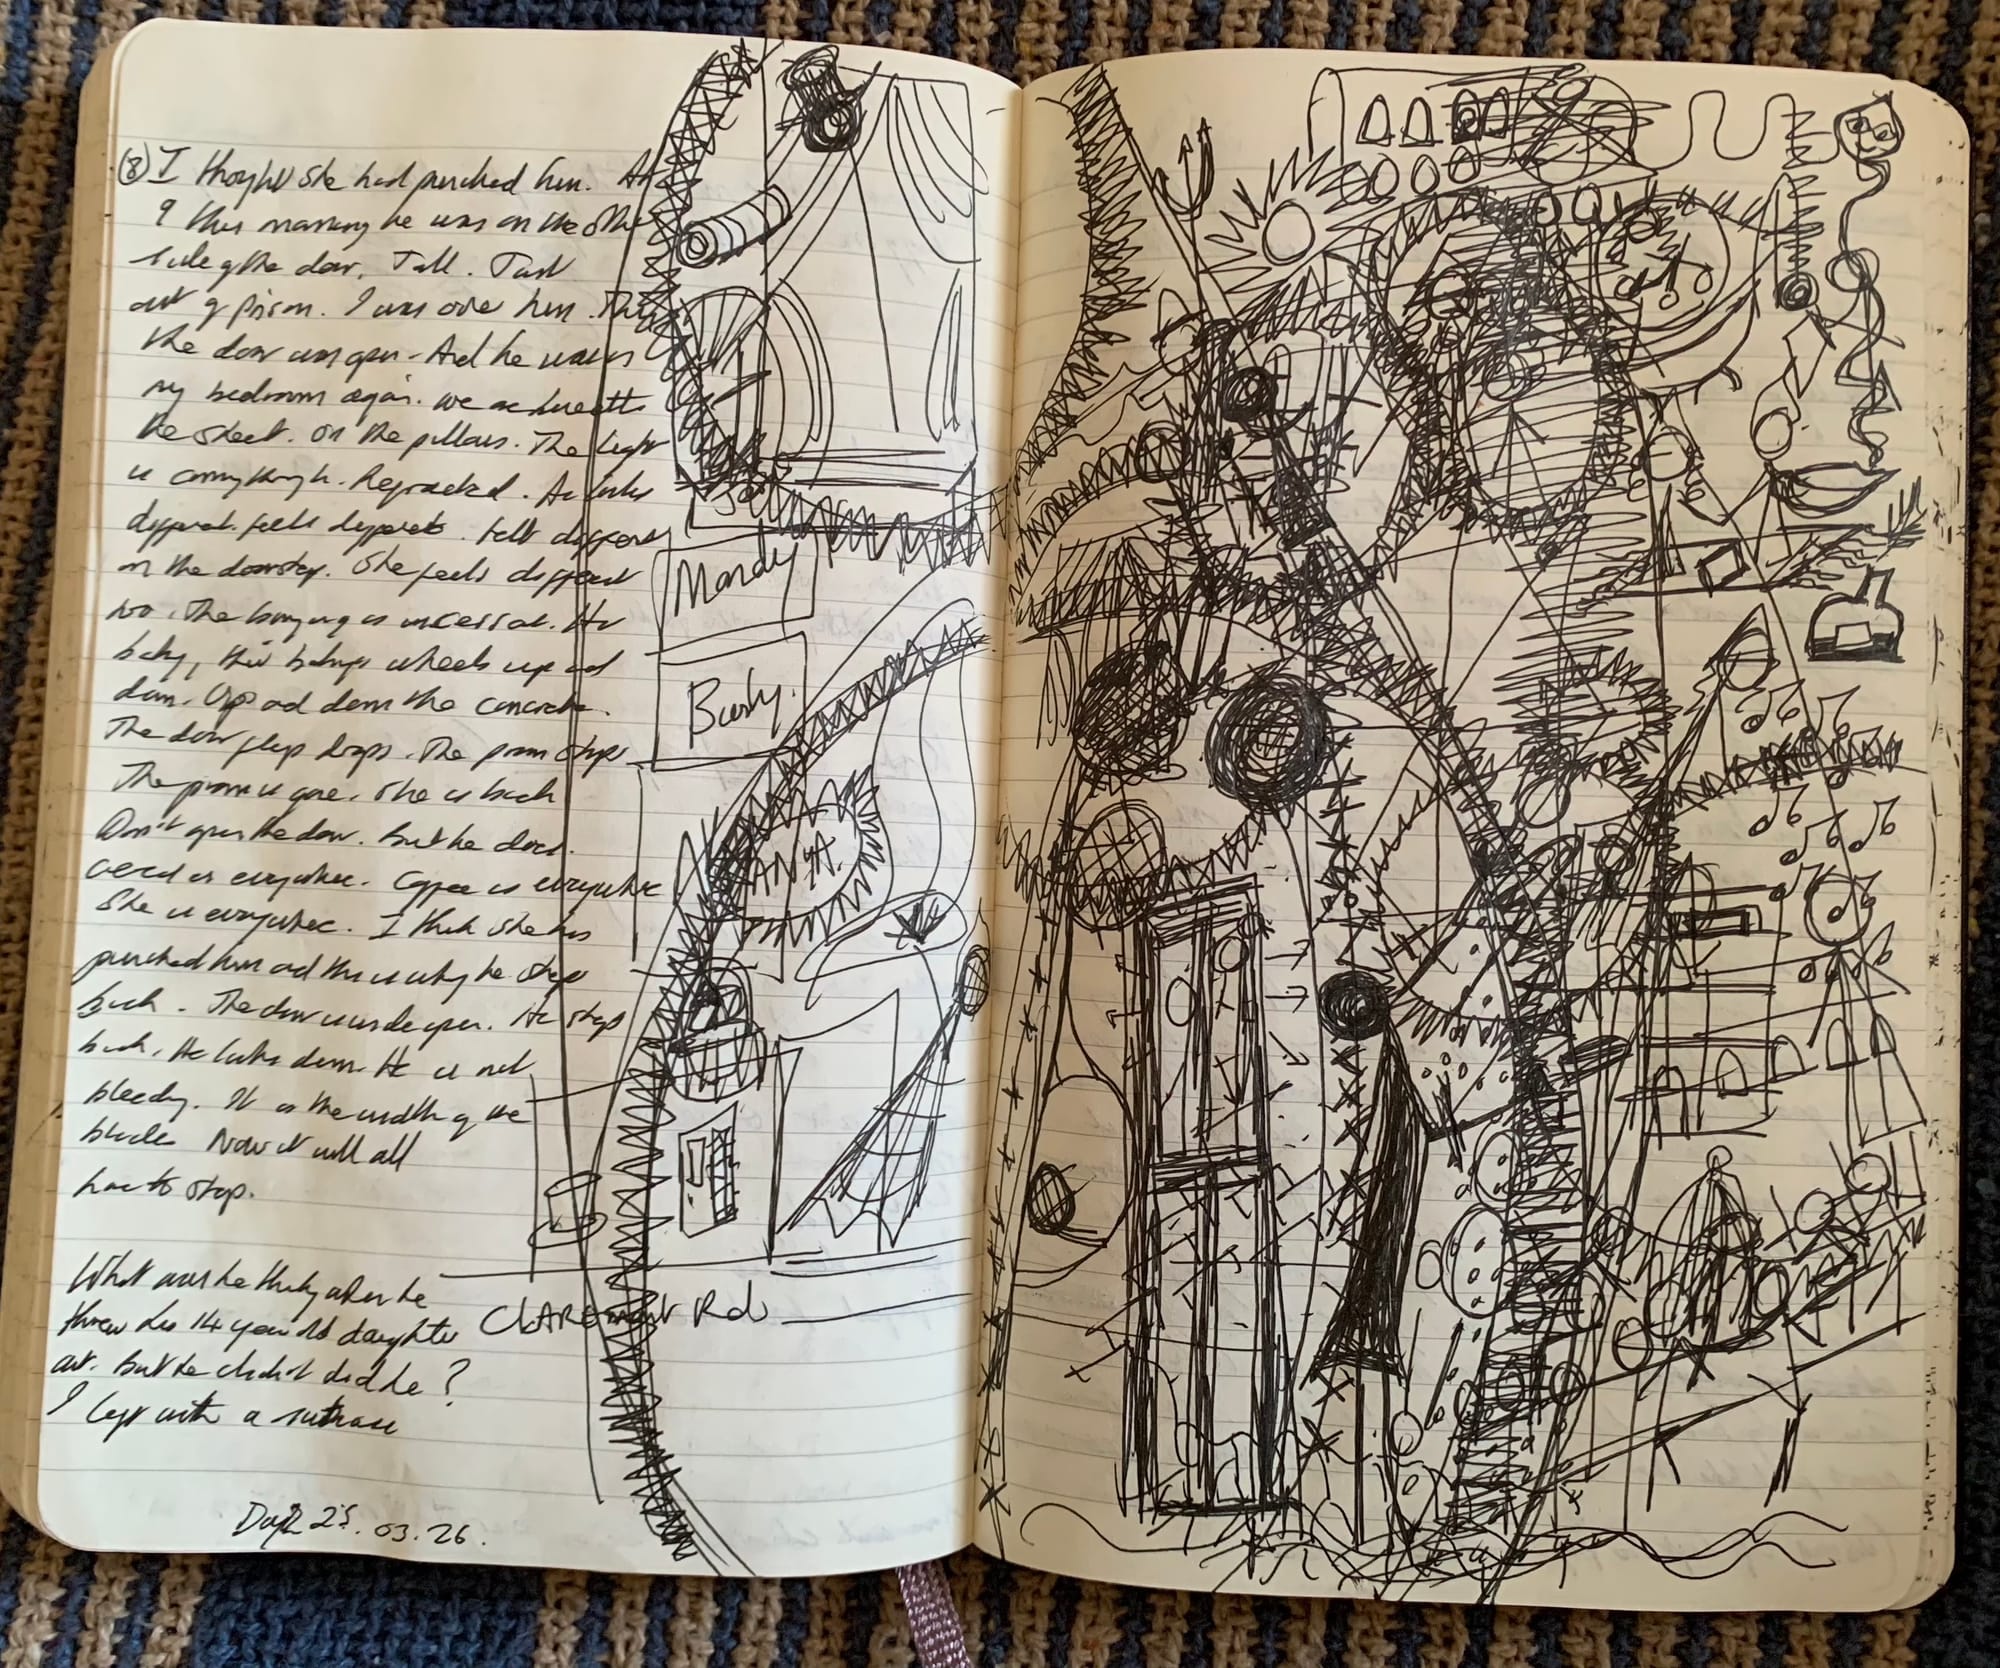 (8) I thought she had punched him.
this morning he was on the
side of the door. Tall. Just
out of prison. I was over him.
the door was open. And he was in
my bedroom again. we are beneath
the sheet. On the pillows. The light
is coming through. Refracted. He looks
different. feels different. felt different
on the doorstep. She feels different
too. The banging is incessant. Her
baby, their babys wheels up and
down. Ups and down the concrete.
The door flap drops. The pram stops
The pram is gone. She is back
Don't open the door. But he does.
weed is everywhere. Coffee is everywhere
She is everywhere. I think she has
punched him and this is why he steps
back. The door was wide open. He steps
back. He looks down. He is not
bleeding. It is the width of the
blade. Now it will all
have to stop.
What was he thinking when he
threw his 14 year old daughter
out. But he didn't did he?
I left with a suitcase
25.03.26.
Mandy
Bushy.
ANYA.
Claremont Rd